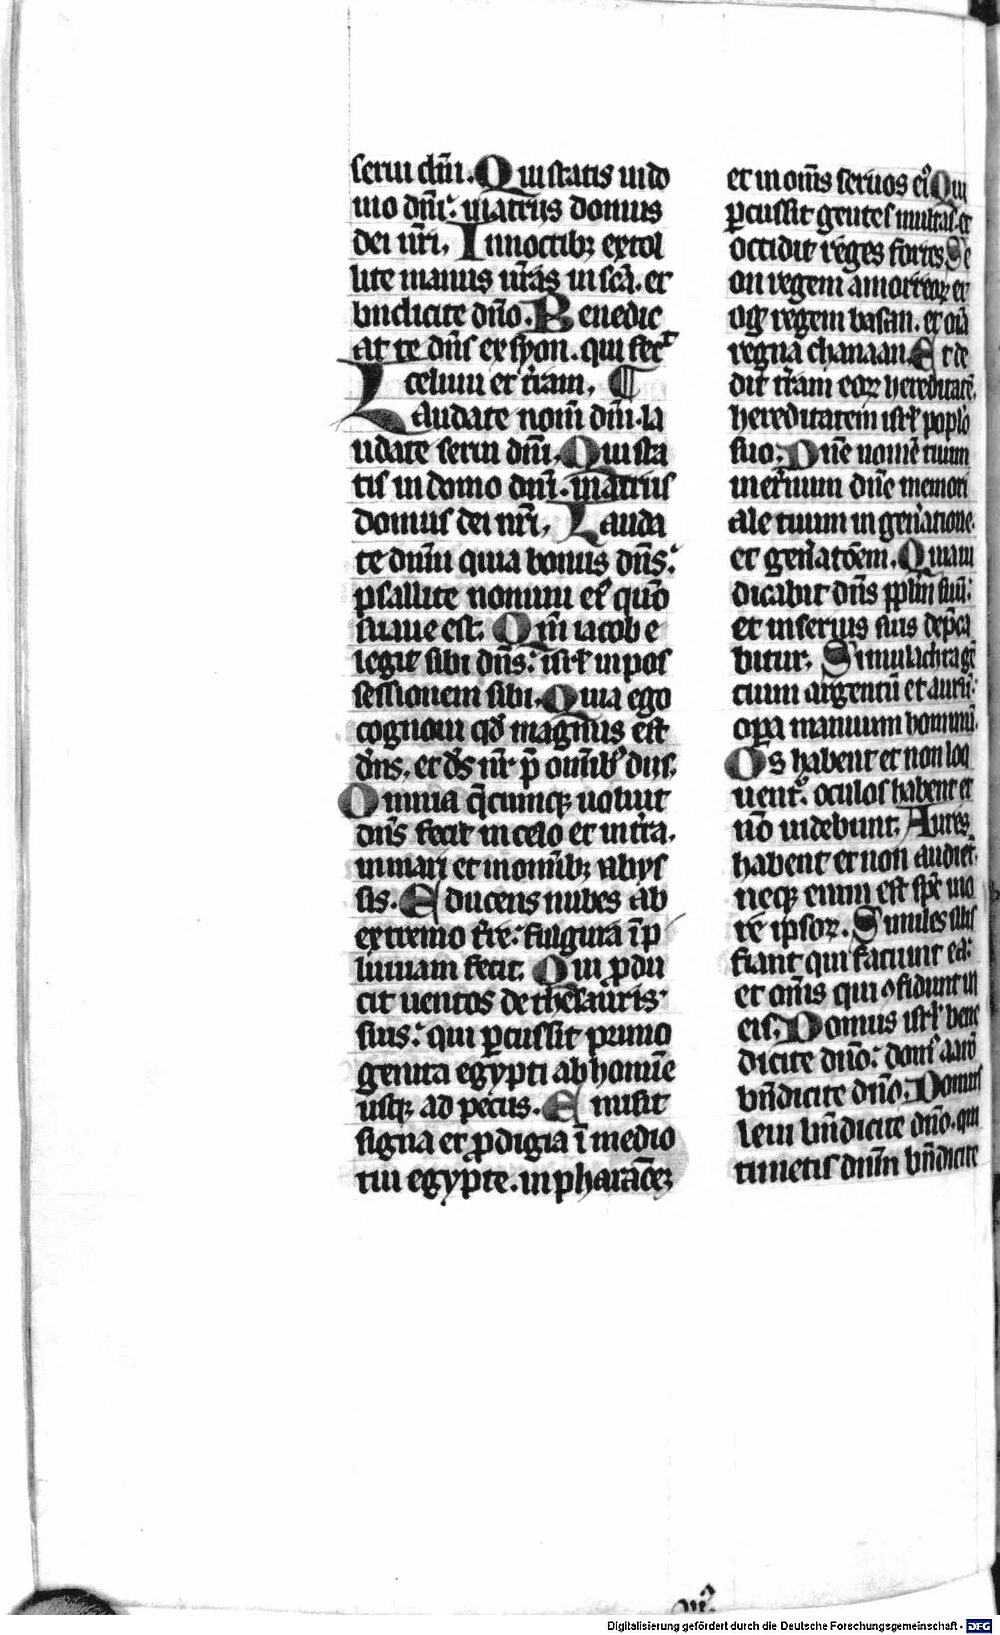 serui dn̄i. Qui statis in do
mo dn̄i: in atriis domus
dei nr̄i. In noctibꝫ extol
lite manus ur̄as in scā. et
bn̄dicite dn̄o. Benedic
at te dn̄s ex syon. qui fec
celum et tr̄am. ¶
Laudate nom̄ dn̄i. la
udate serui dn̄m. Qui sta
tis in domo dn̄i. in atriis
domus dei nr̄i. Lauda
te dn̄m quia bonus dn̄s:
psallite nomini eiꝰ quō
suaue est. Qm̄ iacob e
legit sibi dn̄s: isrl̄ in pos
sessionem sibi. Quia ego
cognoui qd̄ magnus est
dn̄s. et ds̄ nr̄ p̄ omībꝰ diis.
Omnia q̄cumqꝫ uoluit
dn̄s fecit in celo et in tr̄a.
in mari et in omībꝫ abys
sis. Educens nubes ab
extremo tr̄e: fulgura ī p
luuiam fecit. Qui ꝓdu
cit uentos de thesauris
suis: qui ꝑcussit primo
genita egypti ab homīe
usqꝫ ad pecus. Emisit
signa et ꝓdigia ī medio
tui egypte. in pharaōeꝫ
et in om̄s seruos eiꝰ Qui
ꝑcussit gentes multas. et
occidit reges fortes Se
on regem amorreoꝝ et
og regem basan. et om̄ia
regna chanaan. Et de
dit tr̄am eoꝝ hereditatē.
hereditatem isrl̄ poplo
suo. Dn̄e nomē tuum
in et̄num dn̄e memori
ale tuum in gen̄atione.
et gen̄atōem. Quia iu
dicabit dn̄s pplm̄ suū:
et in seruis suis dep̄ca
bitur. Simulachra gē
tium argentū et aurū:
opa manuum hominū.
Os habent et non loq
uentꝰ: oculos habent et
nō uidebunt. Aures
habent et non audiēt.
neqꝫ enim est spc̄ in o
re ipsoꝝ. Similes illis
fiant qui faciunt ea:
et om̄s qui ꝯfidunt in
eis. Domus isrl̄ bene
dicite dn̄o: domꝰ aarō
bn̄dicite dn̄o. Domus
leui bn̄dicite dn̄o. qui
timetis dn̄m bn̄dicite
Digitalisierung gefördert durch die Deutsche Forschungsgemeinschaft - DFG